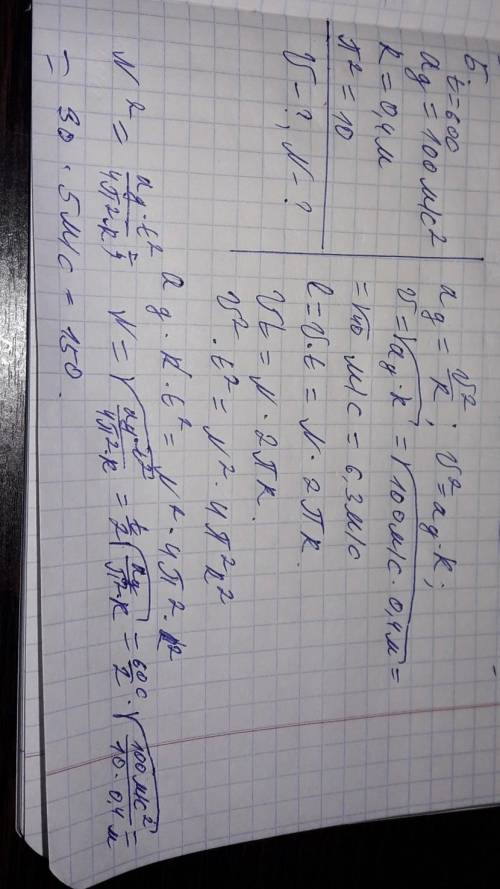 5
t = 60с
aд = 100 м/с²
R = 0,4 м
π² = 10
V - ?, N - ?
aд = V²/R ; V² = aд · R ;
V = √(aд · R) = √(100 м/с · 0,4 м) =
= √40 м/с = 6,3 м/с
l = V · t = N · 2πR
Vt = N · 2πR.
V² · t² = N² · 4π²R²
aд · R · t² = N² · 4π² · R²
N² = aд · t² / 4π² · R ; N = √(aд · t² / 4π² · R) = t/2 √(aд / π² · R) = 60с/2 · √(100 м/с² / 10 · 0,4 м) =
= 30 · 5 м/с = 150.